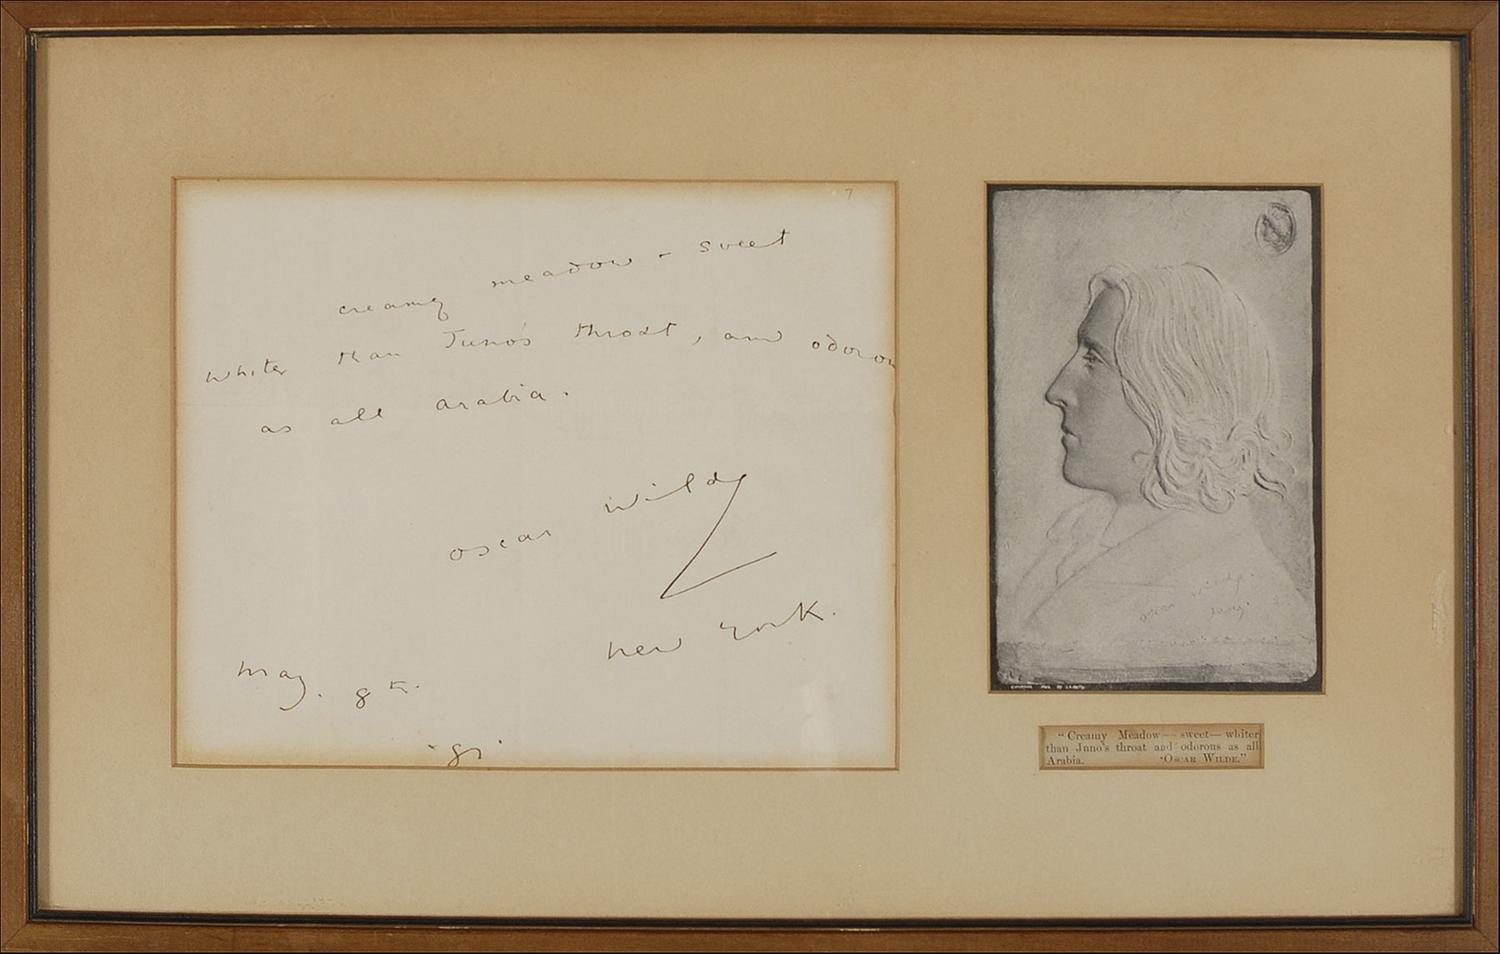 creamy meadow - sweet
whiter than Juno's throat, and odorou
as all arabia.
Oscar Wilde
New York.
May. 8th.
7
Oscar Wilde
"Creamy Meadow—sweet—whiter
than Juno's throat and odorous as all
Arabia. 'OSCAR WILDE."